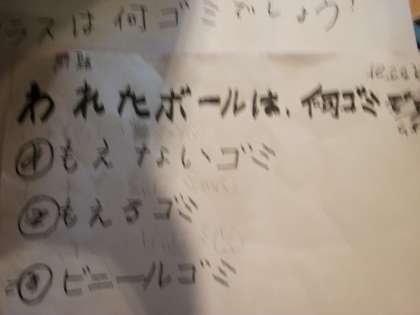 ラスは何ゴミでしょう!
問題
われたボールは、何ゴミ
①もえないゴミ
②もえるゴミ
③ビニールゴミ